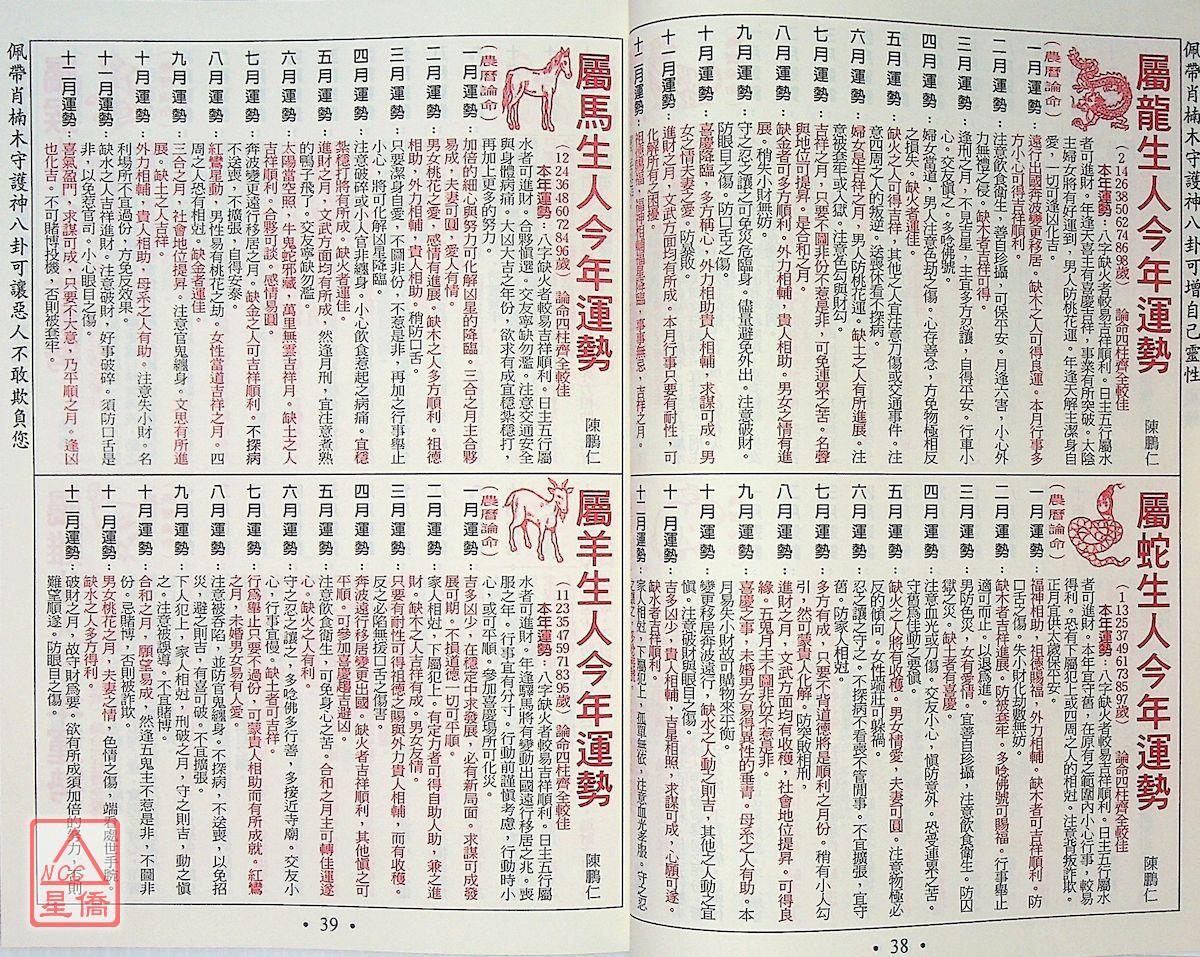 佩帶肖楠木守護神八卦可增自己靈性
屬龍生人今年運勢
陳鵬仁
(2 14 26 38 50 62 74 86 98歲)　論命四柱齊全較佳
(農曆論命)
本年運勢：八字缺火者較易吉祥順利。日主五行屬水
者可進財。年逢天喜主有喜慶吉祥，事業有所突破。太陰
主婦女將有好運到，男人防桃花運。年逢天解主潔身自
愛，一切可逢凶化吉。
一月運勢：遠行出國奔波變更移居。缺木之人可得良運。本月行事多
方小心可得吉祥順利。
二月運勢：注意飲食衛生，善自珍攝，可保平安。月逢六害，小心外
力無禮之侵。缺木者吉祥可得。
三月運勢：逢刑之月，不見吉星，主宜多方忍讓，自得平安。行車小
心。交友慎之。多唸佛號。
四月運勢：婦女當道，男人注意色劫之傷。心存善念，方免物極相反
之損失。缺火者運佳
五月運勢：缺火之人可得吉祥，其他之人宜注意刀傷或交通事件。注
意四周之人的叛逆。送喪休看不探病。
六月運勢：婦女是吉祥之月，男人防桃花運。缺土之人有所進展。注
意被套牢或入獄。注意色勾與財勾。
七月運勢：吉祥之月，只要不圖非份不惹是非，可免連累之苦。名聲
與地位可提昇。是合和之月。
八月運勢：缺金者可多方順利。外力相輔，貴人相助。男女之情有進
展。稍失小財無妨。
九月運勢：守之忍之讓之可免災危臨身。儘量避免外出。注意破財。
防眼目之傷。防口舌之傷。
十月運勢：喜慶降臨，多方稱心，外力相助貴人相輔，求謀可成。男
女之情夫妻之愛。防暴敗。
十一月運勢：進財之月，文武方面均有所成。本月行事只要有耐性，可
化解所有之困擾。
十二月運勢：
屬蛇生人今年運勢
陳鵬仁
(1 13 25 37 49 61 73 85 97歲)　論命四柱齊全較佳
(農曆論命)
本年運勢：八字缺火者較易吉祥順利。日主五行屬水
者可進財。本年宜守舊，在原有之範圍內小心行事，較易
得利。恐有下屬犯上或四周之人的相剋。注意背叛詐欺。
正月宜供太歲保平安。
一月運勢：福神相助，祖德賜福，外力相輔。缺木者可吉祥順利。防
口舌之傷。失小財化劫數無妨。
二月運勢：缺木者吉祥進展。防被套牢。多唸佛號可賜福。行事舉止
適可而止，以退為進
三月運勢：男防色災，女有愛情。宜善自珍攝，注意飲食衛生。防囚
獄之災。缺土者有喜慶。
四月運勢：注意血光或刀傷。交友小心，慎防意外。恐受連累之苦。
守舊為佳動之宜慎。
五月運勢：缺火之人將有收穫。男女情愛，夫妻可圓。注意物極必
反的傾向。女性端莊可躲禍。
六月運勢：忍之讓之守之。不探病不看喪不管閒事。不宜擴張，宜守
舊。防家人相剋。
七月運勢：多方有成，只要不背道德將是順利之月份。稍有小人勾
引，然可蒙貴人化解。防突破相刑。
八月運勢：進財之月，文武方面均有收穫，社會地位提昇。可得良
緣。五鬼月主不圖非份不惹是非。
九月運勢：喜慶之事，未婚男女易得異性的垂青。母系之人有助。本
月易失小財故可購物來平衡。
十月運勢：變更移居奔波遠行，缺水之人動之則吉，其他之人動之宜
慎。注意破財與眼目之傷。
十一月運勢：吉多凶少，貴人相輔，吉星相照，求謀可成，心願可遂。
缺水者吉祥順利。
十二月運勢：
• 38 •
屬馬生人今年運勢
陳鵬仁
(12 24 36 48 60 72 84 96歲)　論命四柱齊全較佳
(農曆論命)
本年運勢：八字缺火者較易吉祥順利。日主五行屬
水者可進財。合夥慎選。交友寧缺勿濫。注意交通安全
與身體病痛。大凶大吉之年份，欲求有成宜穩紮穩打，
再加上更多的努力。
一月運勢：加倍的細心與努力可化解凶星的降臨。三合之月主合夥
易成，夫妻可圓，愛人有情。
二月運勢：男女桃花之愛，感情有進展。缺木之人多方順利。祖德
相助，外力相輔，貴人相助，稍防口舌。
三月運勢：只要潔身自愛，不圖非份，不惹是非，再加之行事舉止
小心，將可化解凶星降臨。
四月運勢：注意破碎或小人官非纏身。小心飲食惹起之病痛。宜穩
紮穩打將有所成。缺火者運佳。
五月運勢：進財之月，文武方面均有所成，然逢月刑，宜注意煮熟
的鴨子飛了。交友寧缺勿濫。
六月運勢：太陽當空照，牛鬼蛇邪藏，萬里無雲吉祥月。缺土之人
吉祥順利。合夥可談。感情易圓
七月運勢：奔波變更遠行移居之月。缺金之人可吉祥順利。不探病
不送喪，不擴張，自得安泰。
八月運勢：紅鸞星動，男性易有桃花之劫。女性當道吉祥之月。四
周之人恐有相剋。缺金者運佳。
九月運勢：三合之月，社會地位提昇。注意官鬼纏身。文思有所進
展。缺土之人吉祥
十月運勢：外力相輔，貴人相助，母系之人有助。注意失小財。名
利場所不宜過份，方免反效果。
十一月運勢：缺水之人吉祥進財。注意破財，好事破碎。須防口舌是
非，以免惹官司。小心眼目之傷。
十二月運勢：喜氣盈門，求謀可成，只要不大意，乃平順之月。逢凶
也化吉。不可賭博投機，否則被套牢。
屬羊生人今年運勢
陳鵬仁
(11 23 35 47 59 71 83 95歲)　論命四柱齊全較佳
(農曆論命)
本年運勢：八字缺火者較易吉祥順利。日主五行屬
水者可進財。年逢驛馬將有變動出國遠行移居之兆。喪
服之年。行事宜有分寸。行動前謹慎考慮，行動時小
心，或可平順。參加喜慶場所可化災。
一月運勢：吉多凶少，在穩定中求發展，必有新局面。求謀可成發
展可期。不損道德一切可平順。
二月運勢：家人相剋，下屬犯上。有定力者可得自助人助，兼之進
財。缺木之人吉祥有成。男女友情。
三月運勢：只要有耐性可得祖德之賜與外力貴人相輔，而有收穫。
反之必陷無援口舌之傷害。
四月運勢：奔波遠行移居變更出國。缺火者吉祥順利，其他慎之可
平順。可參加喜慶趨吉避凶。
五月運勢：注意飲食衛生，可免身心之苦。合和之月主可轉佳運遂
心。缺火之人有利。
六月運勢：守之忍之讓之，多唸佛多行善，多接近寺廟。交友小
心，行事宜慢。缺土者可吉祥。
七月運勢：行為舉止只要不過份，可蒙貴人相助而有所成就。紅鸞
之月，未婚男女易有人愛。
八月運勢：注意被吞陷，並防官鬼纏身。不探病，不送喪，以免招
災，避之則吉，有喜可破。不宜擴張。
九月運勢：下人犯上，家人相剋，刑破之月，守之則吉，動之慎
之。注意被誤導。不宜賭博。
十月運勢：合和之月，願望易成，然逢五鬼主不惹是非，不圖非
份。忌賭博，否則被詐欺。
十一月運勢：男女桃花之月，夫妻之情，色情之傷，端看處世手腕。
缺水之人多方得利。
十二月運勢：破財之月，故守財為要。欲有所成須加倍的努力，否則
難望順遂。防眼目之傷。
• 39 •
佩帶肖楠木守護神八卦可讓惡人不敢欺負您
NCC
星僑